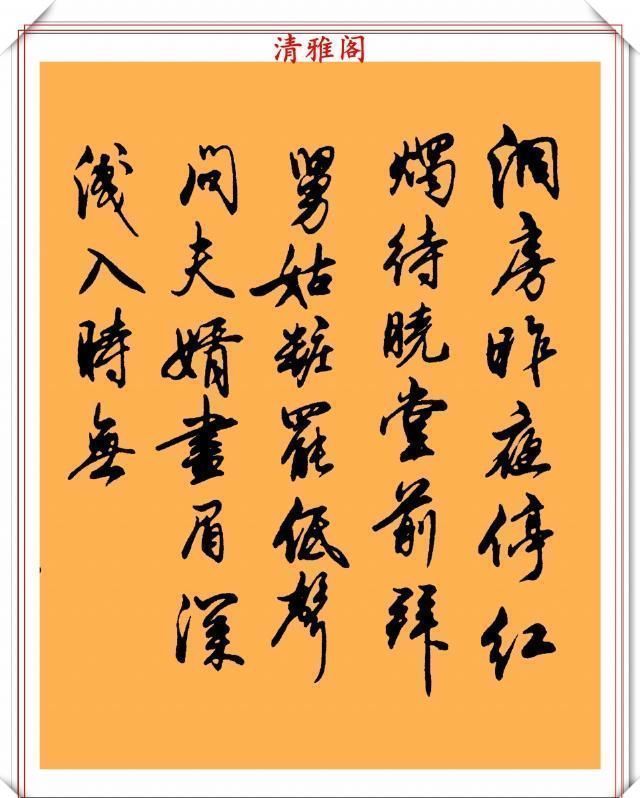 清雅阁
洞房昨夜停红
燭待曉堂前拜
舅姑粧罷低聲
問夫婿畫眉深
淺入時無